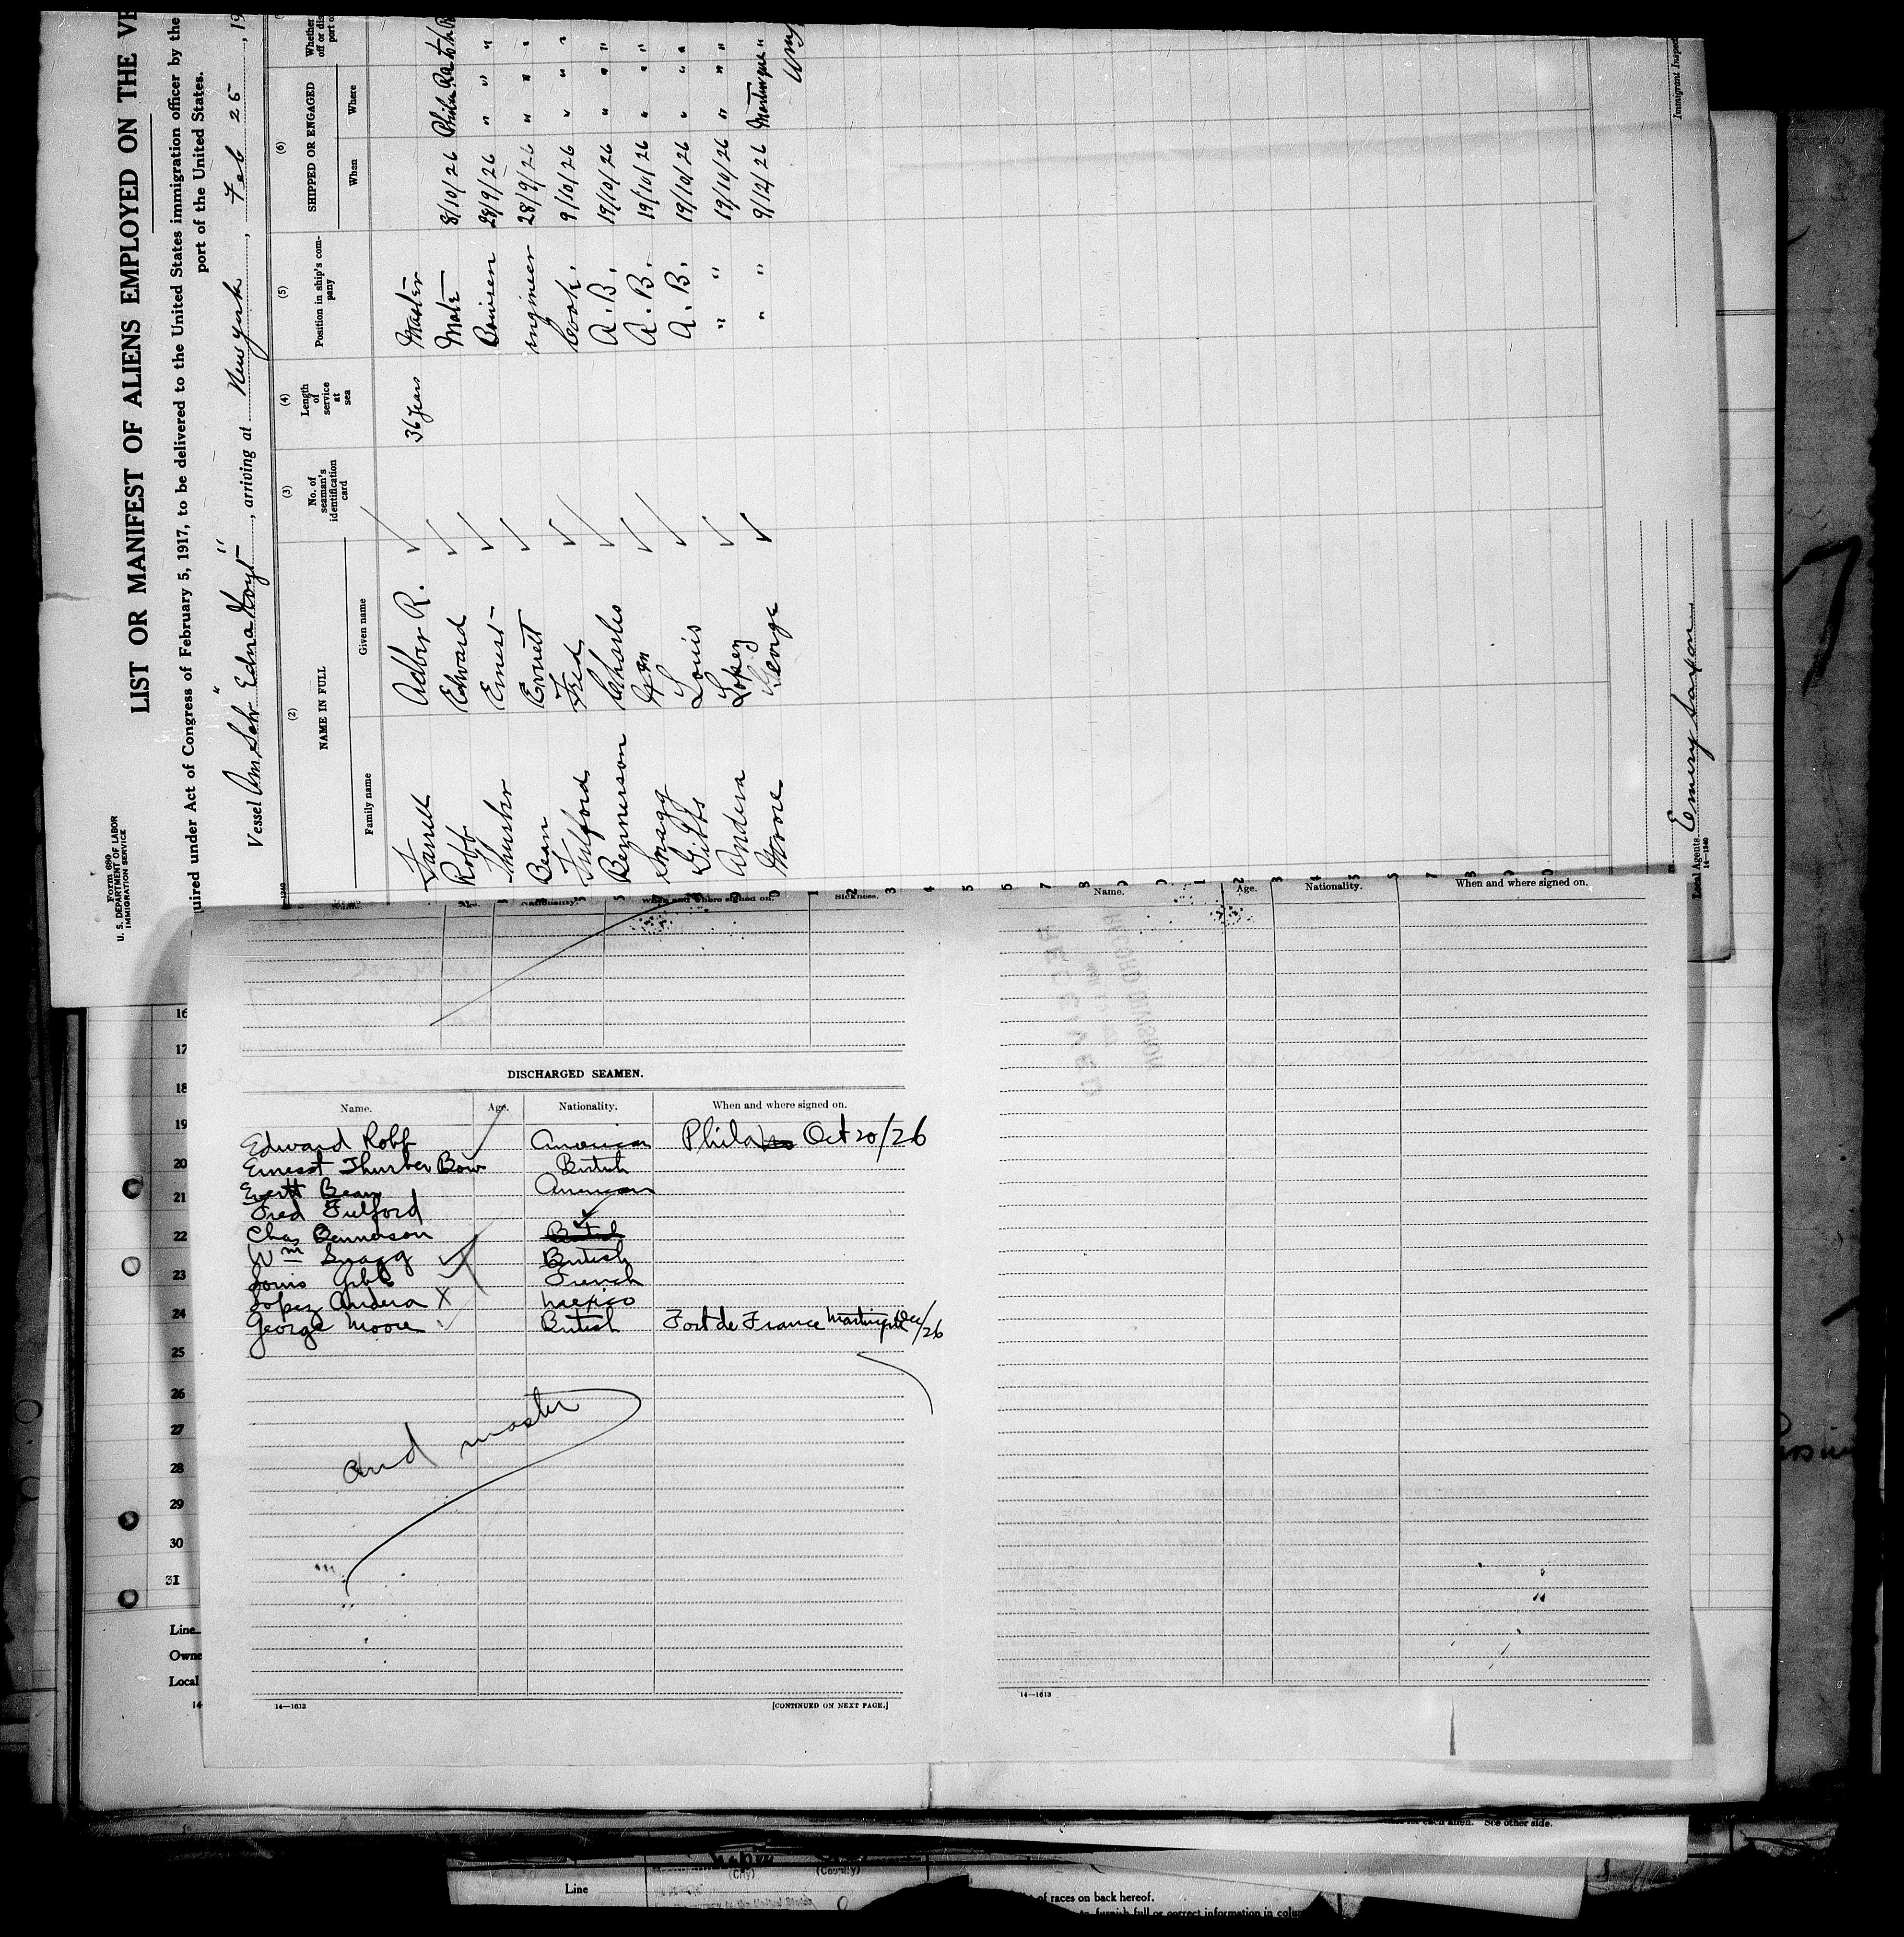 Form 680
U. S. DEPARTMENT OF LABOR
IMMIGRATION SERVICE
LIST OR MANIFEST OF ALIENS EMPLOYED ON THE VE
quired under Act of Congress of February 5, 1917, to be delivered to the United States immigration officer by the
port of the United States.
Vessel Am. Schr "Edna Hoyt", arriving at New york, Feb 25, 19
(2) (3) (4) (5) (6)
NAME IN FULL
Family name Given name
No. of seaman's identification card
Length of service at sea
Position in ship's company
SHIPPED OR ENGAGED
When Where
Whether
Adber R. ✓ 36 years Master
Robb Edward ✓ Mate 8/10/26 Phila Pa
Thurber Ernest ✓ 28/9/26 " "
Bean Everett ✓ engineer 28/9/26 " "
Fulford Fred ✓ cook. 9/10/26 " "
Bennerson Charles ✓ A. B. 19/10/26 " "
Snagg Wm ✓ A. B. 19/10/26 " "
Gibbs Louis ✓ A. B. 19/10/26 " "
Andera Lopez ✓ " " 19/10/26 " "
Moore George ✓ " " 9/12/26 Martinque "
Immigrant Inspec
Local Agents Emery Saxon
14—1240
Name. Age. Nationality. When and where signed on. Sickness.
Name. Age. Nationality. When and where signed on.
RECEIVED
RECORD DIVISION
DISCHARGED SEAMEN.
Name. Age. Nationality. When and where signed on.
Edward Robb American Phila Oct 20/26
Ernest Thurber Bow British
Evertt Bean American
Fred Fulford
Chas Bennerson British
Wm Snagg British
Louis Gibbs French
Lopez Andera X Mexico
George Moore British Fort de France Martinque Dec/26
and master
16
17
18
19
20
21
22
23
24
25
26
27
28
29
30
31
Line
Owne
Local
14
14—1613
[CONTINUED ON NEXT PAGE.]
14—1613
for each alien. See other side.
(City) (Country)
Line
of races on back hereof.
to furnish full or correct information in colu